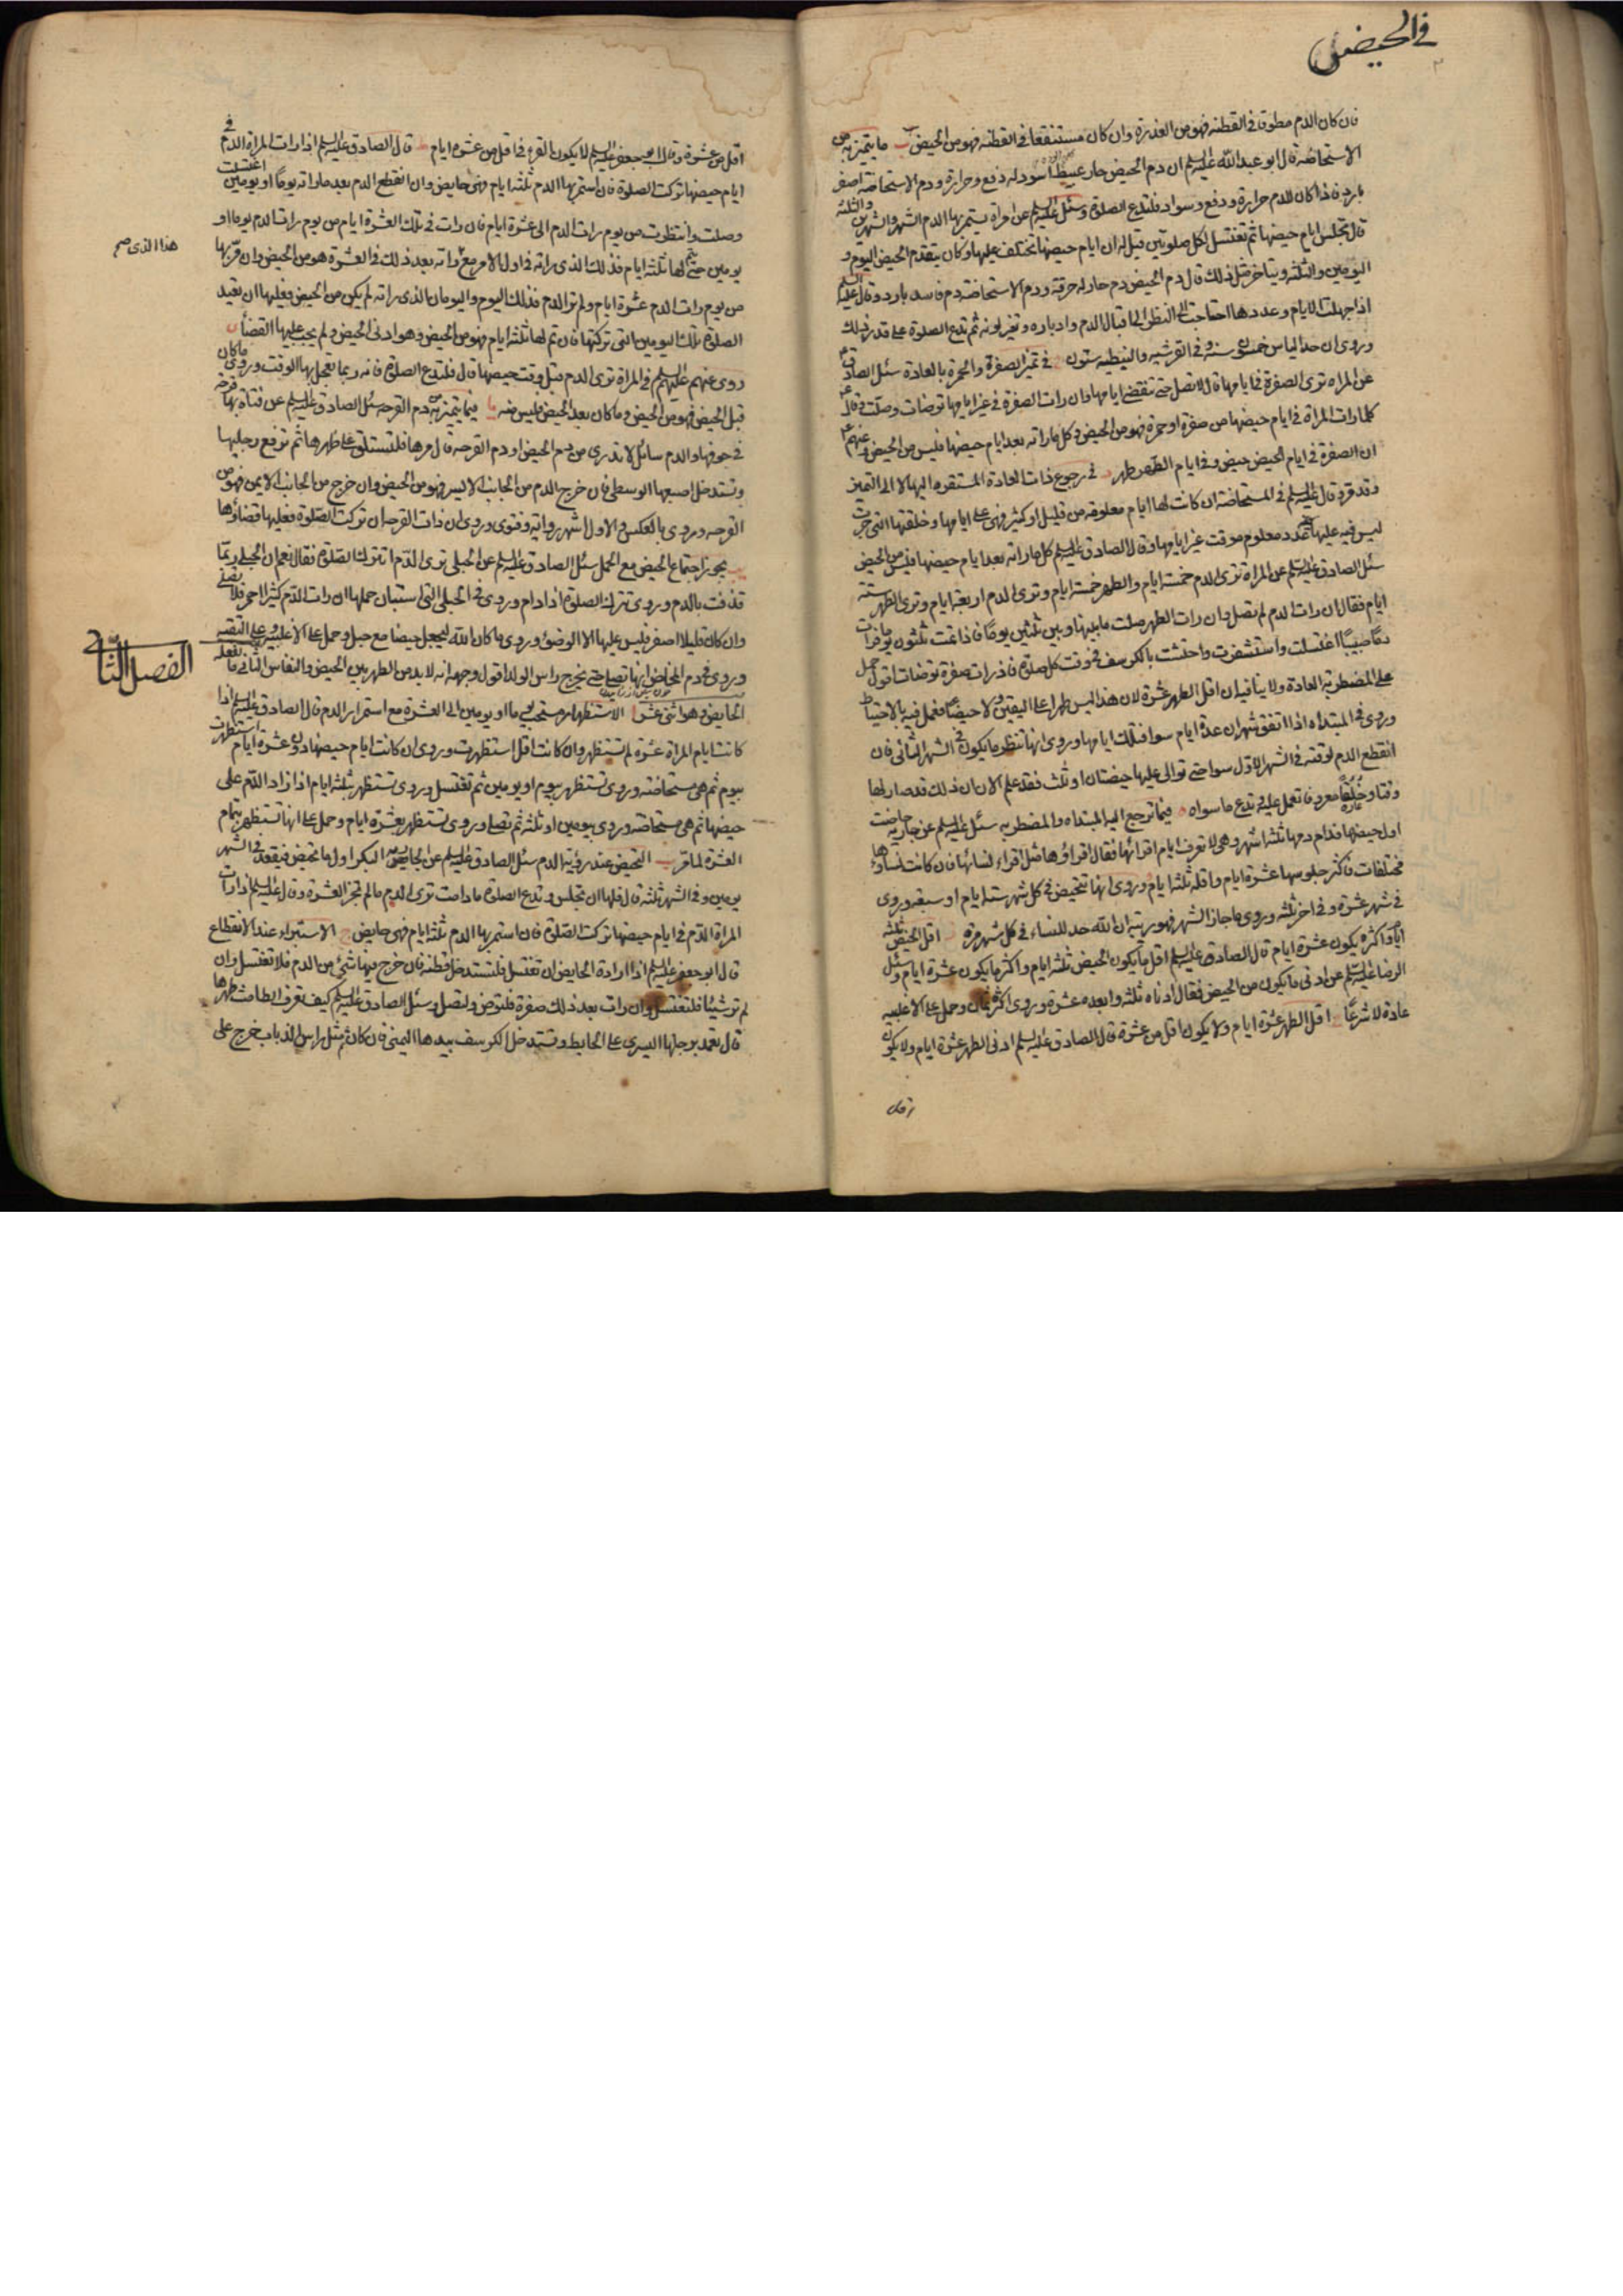 في الحيض
فان كان الدم مطوقا في القطنه فهو من العذرة وان كان مستنقعا في القطنه فهو من الحيض ب ما يتميز به من
الاستحاضة قال ابو عبد الله عليه السلم ان دم الحيض حار عبيط اسود له دفع وحرارة ودم الاستحاضة اصفر
بارد فاذا كان للدم حرارة ودفع وسواد فلتدع الصلوة وسئل عليه السلم عن امراة يستمر بها الدم الشهر والشهرين والثلثة
قال تجلس ايام حيضها ثم تغتسل لكل صلوتين قيل له ان ايام حيضها تختلف عليها وكان يتقدم الحيض اليوم و
اليومين والثلثة ويتاخر مثل ذلك قال دم الحيض دم حار له حرقة ودم الاستحاضة دم فاسد بارد وقال عليه السلم
اذا جهلت الايام وعددها احتاجت الى النظر الى اقبال الدم وادباره وتغير لونه ثم تدع الصلوة على قدر ذلك
وروى ان حد الياس خمسون سنة و في القرشيه والنبطيه ستون في تميز الصفرة والحمرة بالعادة سئل الصادق ع
عن المراه ترى الصفرة في ايامها قال لا تصل حتى تنقضي ايامها وان رات الصفرة في غير ايامها توضات وصلت وقال ع
كلما رات المراة في ايام حيضها من صفرة او حمرة فهو من الحيض وكل ما راته بعد ايام حيضها فليس من الحيض وعنهم ع
ان الصفرة في ايام الحيض حيض وفي ايام الطهر طهر في رجوع ذات العادة المستقره اليها لا الى التميز
وقد قره قال عليه السلم في المستحاضة ان كانت لها ايام معلومه من قليل او كثير فهي على ايامها وخلقتها التي جرت
ليس فيه عليها عدد معلوم موقت غير ايامها وقال الصادق عليه السلم كل ما راته بعد ايام حيضها فليس من الحيض
سئل الصادق عليه السلم عن المراة ترى الدم خمسة ايام والطهر خمسة ايام وترى الدم اربعة ايام وترى الطهر ستة
ايام فقال ان رات الدم لم تصل وان رات الطهر صلت ما بينها وبين ثلثين يوما فاذا تمت ثلثون يوما فرات
دما صبيبا اغتسلت واستثفرت واحتشت بالكرسف في وقت كل صلوة فاذا رات صفرة توضات اقول حمل
على المضطربة العادة ولا ينافي ان اقل الطهر عشرة لان هذا ليس طهرا على اليقين ولا حيضا فعمل فيه بالاحتياط
وروى في المبتداه اذا اتفق شهران عدة ايام سوا فتلك ايامها وروى انها تنتظر ما يكون في الشهر الثاني فان
انقطع الدم لوقته في الشهر الاول سوا حتى توالى عليها حيضتان او ثلث فقد علم الان ان ذلك قد صار لها
وقتا وخلقا معروفا تعمل عليه وتدع ما سواه فيما ترجع اليه المبتداه والمضطربه سئل عليه السلم عن جاريه حاضت
اول حيضها فدام دمها ثلثة اشهر وهي لا تعرف ايام اقرائها فقال اقراؤها مثل اقراء نسائها فان كانت نساؤها
مختلفات فاكثر جلوسها عشرة ايام واقله ثلثة ايام وروى انها تتحيض في كل شهر ستة ايام او سبعة وروى
في شهر عشرة وفي اخر ثلثة وروى ما جاز الشهر فهو ريبة ان الله حد للنساء في كل شهر مرة اقل الحيض ثلثة
ايام واكثره يكون عشرة ايام قال الصادق عليه السلم اقل ما يكون الحيض ثلثة ايام واكثر ما يكون عشرة ايام وسئل
الرضا عليه السلم عن ادنى ما يكون من الحيض فقال ادناه ثلثة وابعده عشرة وروى اكثره ثمان وحمل على الاغلبيه
عادة لا شرعا اقل الطهر عشرة ايام ولا يكون اقل من عشرة قال الصادق عليه السلم ادنى الطهر عشرة ايام ولا يكون
اقل
اقل من عشرة وقال ابو جعفر عليه السلم لا يكون القرء في اقل من عشرة ايام ط قال الصادق عليه السلم اذا رات المراة الدم في
ايام حيضها تركت الصلوة فان استمر بها الدم ثلثة ايام فهي حايض وان انقطع الدم بعد ما راته يوما او يومين اغتسلت
وصلت وانتظرت من يوم رات الدم الى عشرة ايام فان رات في تلك العشرة ايام من يوم رات الدم يوما او
يومين حتى يتم لها ثلثة ايام فذلك الذي راته في اول الامر مع ما راته بعد ذلك في العشرة هو من الحيض وان مر بها
هذا الذي صح
من يوم رات الدم عشرة ايام ولم تر الدم فذلك اليوم واليومان الذي راته لم يكن من الحيض فعليها ان تعيد
الصلوة تلك اليومين التي تركتها فان تم لها ثلثة ايام فهو من الحيض وهو ادنى الحيض ولم يجب عليها القضا
روى عنهم عليهم السلم في المراة ترى الدم قبل وقت حيضها قال فلتدع الصلوة فانه ربما تعجل بها الوقت وروى ما كان
قبل الحيض فهو من الحيض وما كان بعد الحيض فليس منه يا فيما يتميز به من دم القرحه سئل الصادق عليه السلم عن فتاة بها قرحة
في جوفها والدم سائل لا تدري من دم الحيض او دم القرحه قال مرها فلتستلق على ظهرها ثم ترفع رجليها
وتستدخل اصبعها الوسطى فان خرج الدم من الجانب الايسر فهو من الحيض وان خرج من الجانب الايمن فهو من
القرحه وروى بالعكس والاول اشهر روايه وفتوى وروى ان ذات القرحه ان تركت الصلوة فعليها قضاؤها
يب يجوز اجتماع الحيض مع الحمل سئل الصادق عليه السلم عن الحبلى ترى الدم اتترك الصلوة فقال نعم ان الحبلى ربما
قذفت بالدم وروى تترك الصلوة اذا دام وروى في الحبلى التي استبان حملها ان رات الدم كثيرا احمر فلا تصلي
وان كان قليلا اصفر فليس عليها الا الوضوء وروى ما كان الله ليجعل حيضا مع حبل وحمل على الاغلبيه وعلى التقيه
وروى في دم المخاض انها تصلي حتى يخرج راس الولد اقول وجهه انه لا بد من الطهر بين الحيض والنفاس
الفصل الثاني فيما تفعله
الحايض وهو اثنى عشر ا الاستظهار مستحب يوما او يومين الى العشرة مع استمرار الدم قال الصادق عليه السلم اذا
كانت ايام المراة عشرة لم تستظهر وان كانت اقل استظهرت وروى ان كانت ايام حيضها دون عشرة ايام استظهرت
بيوم ثم هي مستحاضة وروى تستظهر بيوم او يومين ثم تغتسل وروى تستظهر بثلثة ايام اذا زاد الدم على
حيضها ثم هي مستحاضه وروى بيومين او ثلثه ثم تصلي وروى تستظهر بعشرة ايام وحمل على انها تستظهر بتمام
العشرة لما مر ب التحيض عند رؤية الدم سئل الصادق عليه السلم عن الجاريه البكر اول ما تحيض فتقعد في الشهر
يومين وفي الشهر ثلثة قال فلها ان تجلس وتدع الصلوة ما دامت ترى الدم ما لم تجز العشرة وقال عليه السلم اذا رات
المراة الدم في ايام حيضها تركت الصلوة فان استمر بها الدم ثلثة ايام فهي حايض ج الاستبراء عند الانقطاع
قال ابو جعفر عليه السلم اذا ارادة الحايض ان تغتسل فلتستدخل قطنة فان خرج فيها شئ من الدم فلا تغتسل وان
لم تر شيئا فلتغتسل وان رات بعد ذلك صفرة فلتوض ولتصل وسئل الصادق عليه السلم كيف تعرف الطامث طهرها
قال تعمد برجلها اليسرى على الحايط وتستدخل الكرسف بيدها اليمنى فان كان ثم مثل راس الذباب خرج على